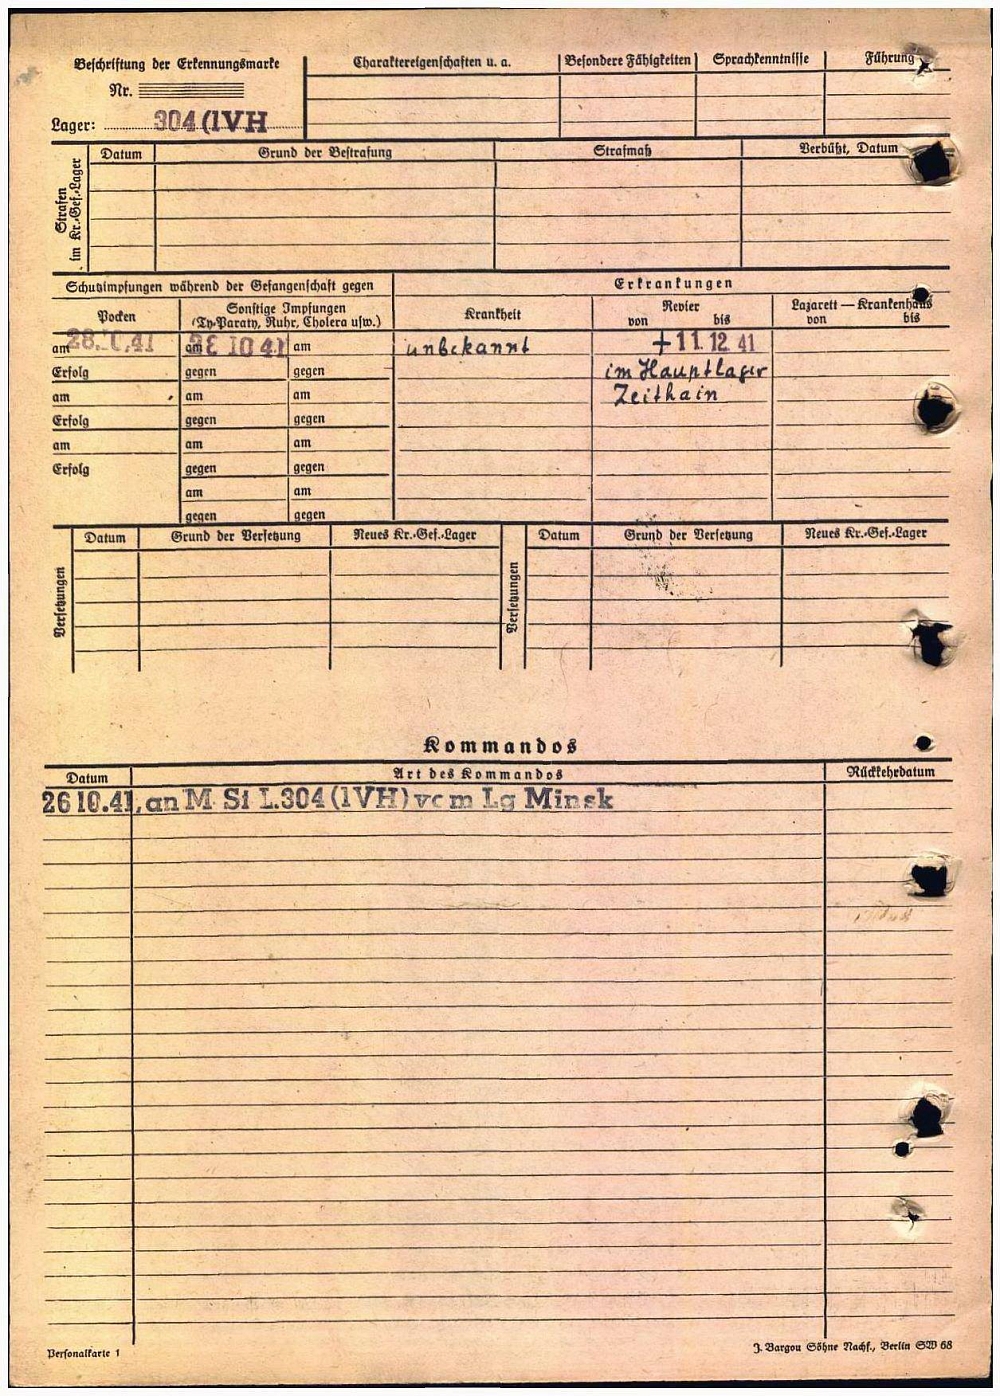 Beschriftung der Erkennungsmarke
Nr.
Lager: 304 (IVH
Charaktereigenschaften u. a.
Besondere Fähigkeiten
Sprachkenntnisse
Führung
Strafen im Kr.-Gef.-Lager
Datum
Grund der Bestrafung
Strafmaß
Verbüßt, Datum
Schutzimpfungen während der Gefangenschaft gegen
Erkrankungen
Pocken
Sonstige Impfungen
(Ty-Paraty, Ruhr, Cholera usw.)
Krankheit
Revier
von bis
Lazarett — Krankenhaus
von bis
am 28.10.41 am 28 10 41 am unbekannt +11. 12. 41
Erfolg gegen gegen im Hauptlager
am am am Zeithain
Erfolg gegen gegen
am am am
Erfolg gegen gegen
am am
gegen gegen
Versetzungen
Datum
Grund der Versetzung
Neues Kr.-Gef.-Lager
Versetzungen
Datum
Grund der Versetzung
Neues Kr.-Gef.-Lager
Kommandos
Datum
Art des Kommandos
Rückkehrdatum
26 10.41, an M St L.304 (IVH) vom Lg Minsk
Personalkarte 1
J. Bargou Söhne Nachf., Berlin SW 68